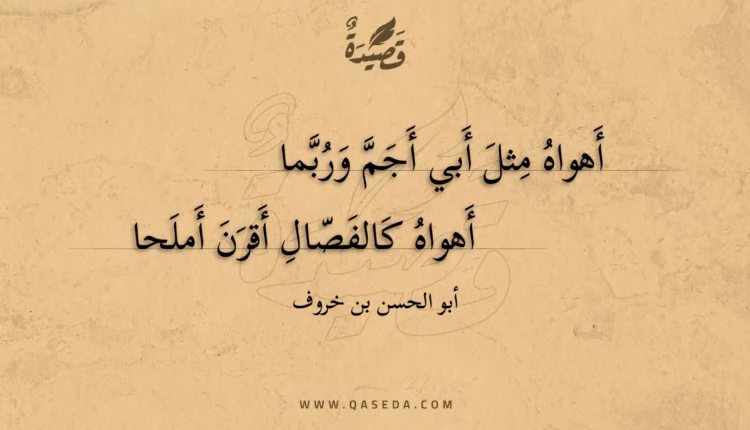 قَصِيْدَةٌ
أَهواهُ مِثلَ أَبي أَجَمَّ وَرُبَّما
أَهواهُ كَالفَصّالِ أَقرَنَ أَملَحا
أبو الحسن بن خروف
WWW.QASEDA.COM